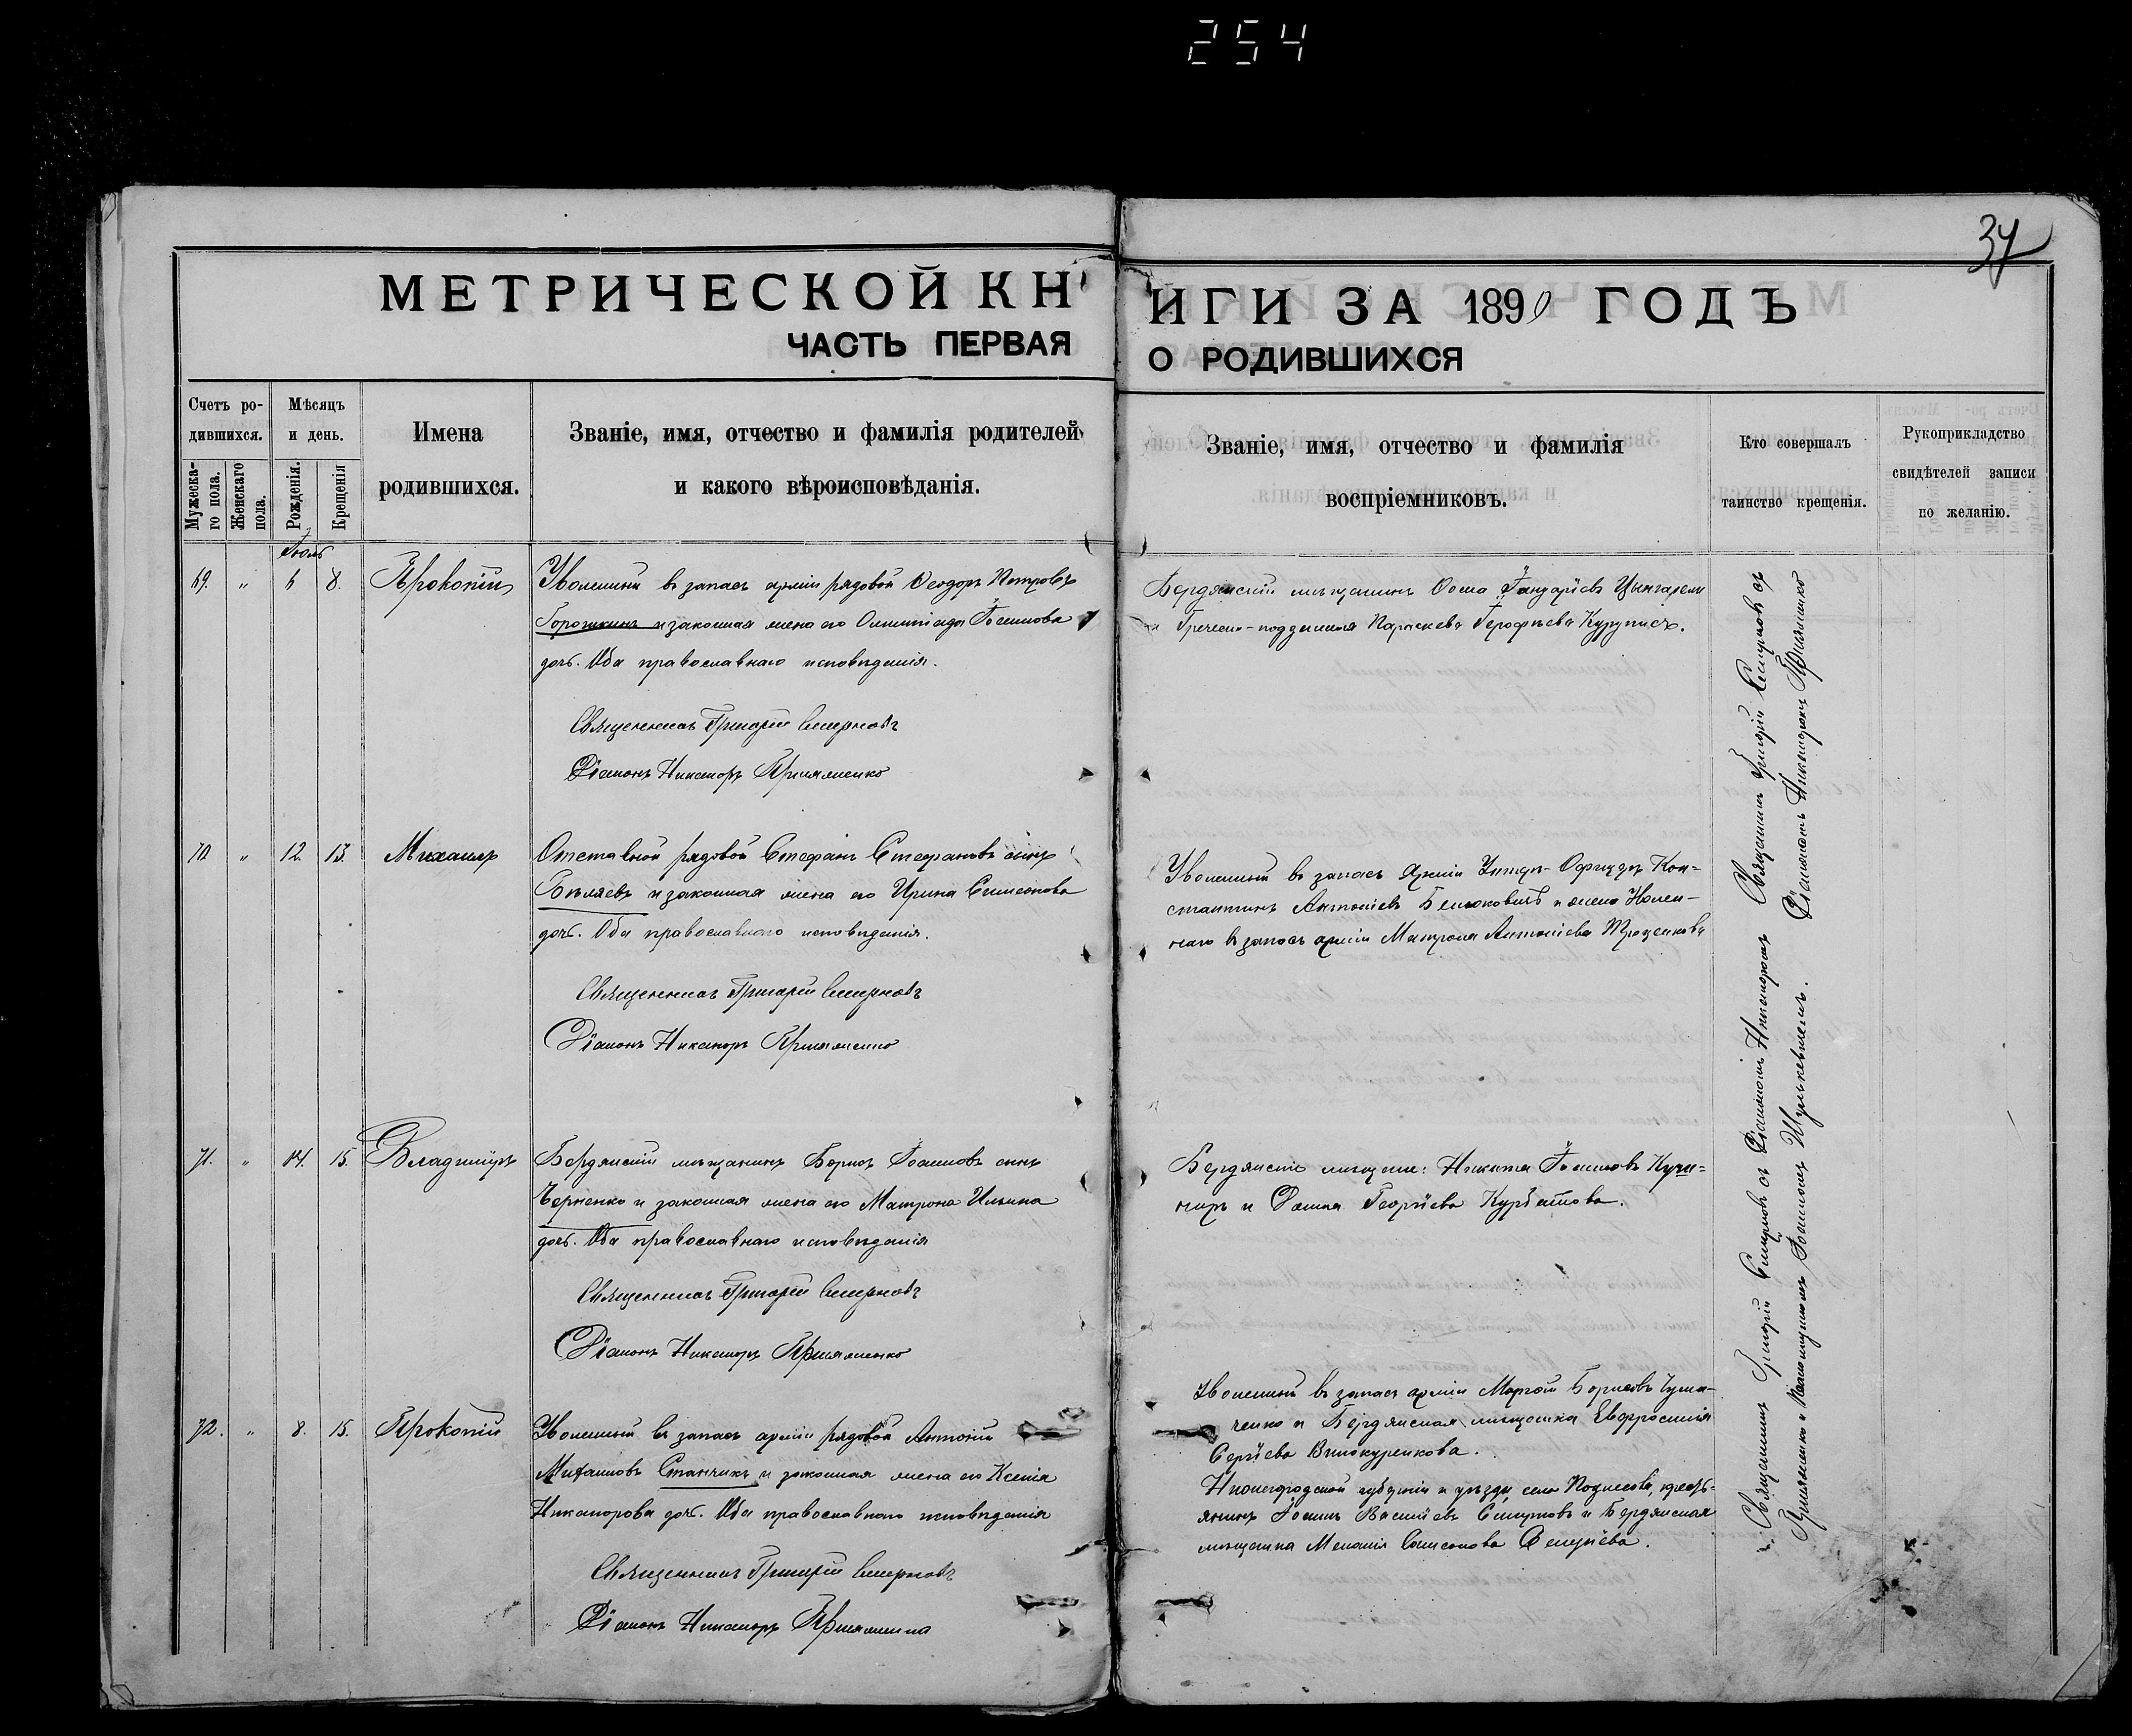 254
37
МЕТРИЧЕСКОЙ КНИГИ ЗА 1890 ГОДЪ
ЧАСТЬ ПЕРВАЯ О РОДИВШИХСЯ
Счетъ ро-
дившихся.
Мужеска-
го пола.
Женскаго
пола.
Мѣсяцъ
и день.
Рожденія.
Крещенія
Имена
родившихся.
Званіе, имя, отчество и фамилія родителей
и какого вѣроисповѣданія.
Званіе, имя, отчество и фамилія
воспріемниковъ.
Кто совершалъ
таинство крещенія.
Рукоприкладство
свидѣтелей записи
по желанію.
Іюль
69. " 6 8. Прокопій
Уволенный въ запасъ арміи рядовой Ѳеодоръ Петровъ
Горошкинъ и законная жена его Олимпіада Іоаннова
дочь. Оба православнаго исповѣданія.
Священникъ Григорій Смирновъ
Діаконъ Никаноръ
Бердянскій мѣщанинъ Ѳома
и Греческо-подданная Параскева
70 " 12. 13. Михаилъ
Отставной рядовой Стефанъ Стефановъ сынъ
Бѣляевъ и законная жена его Ирина Симеонова
дочь. Оба православнаго исповѣданія.
Священникъ Григорій Смирновъ
Діаконъ Никаноръ
Уволенный въ запасъ Арміи Унтеръ-Офицеръ Кон-
стантинъ Антоніевъ и жена
въ запасъ арміи Матрона Антоніева
71. " 14. 15. Владиміръ
Бердянскій мѣщанинъ Борисъ Іоанновъ сынъ
Черненко и законная жена его Матрона Ильина
дочь. Оба православнаго исповѣданія
Священникъ Григорій Смирновъ
Діаконъ Никаноръ
Бердянскіе мѣщане: Никита Іоанновъ Кучи-
и Георгіева Курбатова.
72. " 8. 15. Прокопій
Уволенный въ запасъ арміи рядовой Антоній
Михаиловъ Станчикъ и законная жена его Ксенія
Никанорова дочь. Оба православнаго исповѣданія
Священникъ Григорій Смирновъ
Діаконъ Никаноръ
Уволенный въ запасъ арміи Борисовъ
ченко и Бердянская мѣщанка Евфросинія
Сергіева Винокуренкова.
Нижегородской губерніи и уѣзда села кресть-
янинъ Іоаннъ Василіевъ Смирновъ и Бердянская
мѣщанка Меланія
Священникъ Григорій Смирновъ съ Діакономъ Никаноромъ
и Псаломщикомъ Іоанномъ
Священникъ Григорій Смирновъ съ
Діаконамъ Никаноромъ